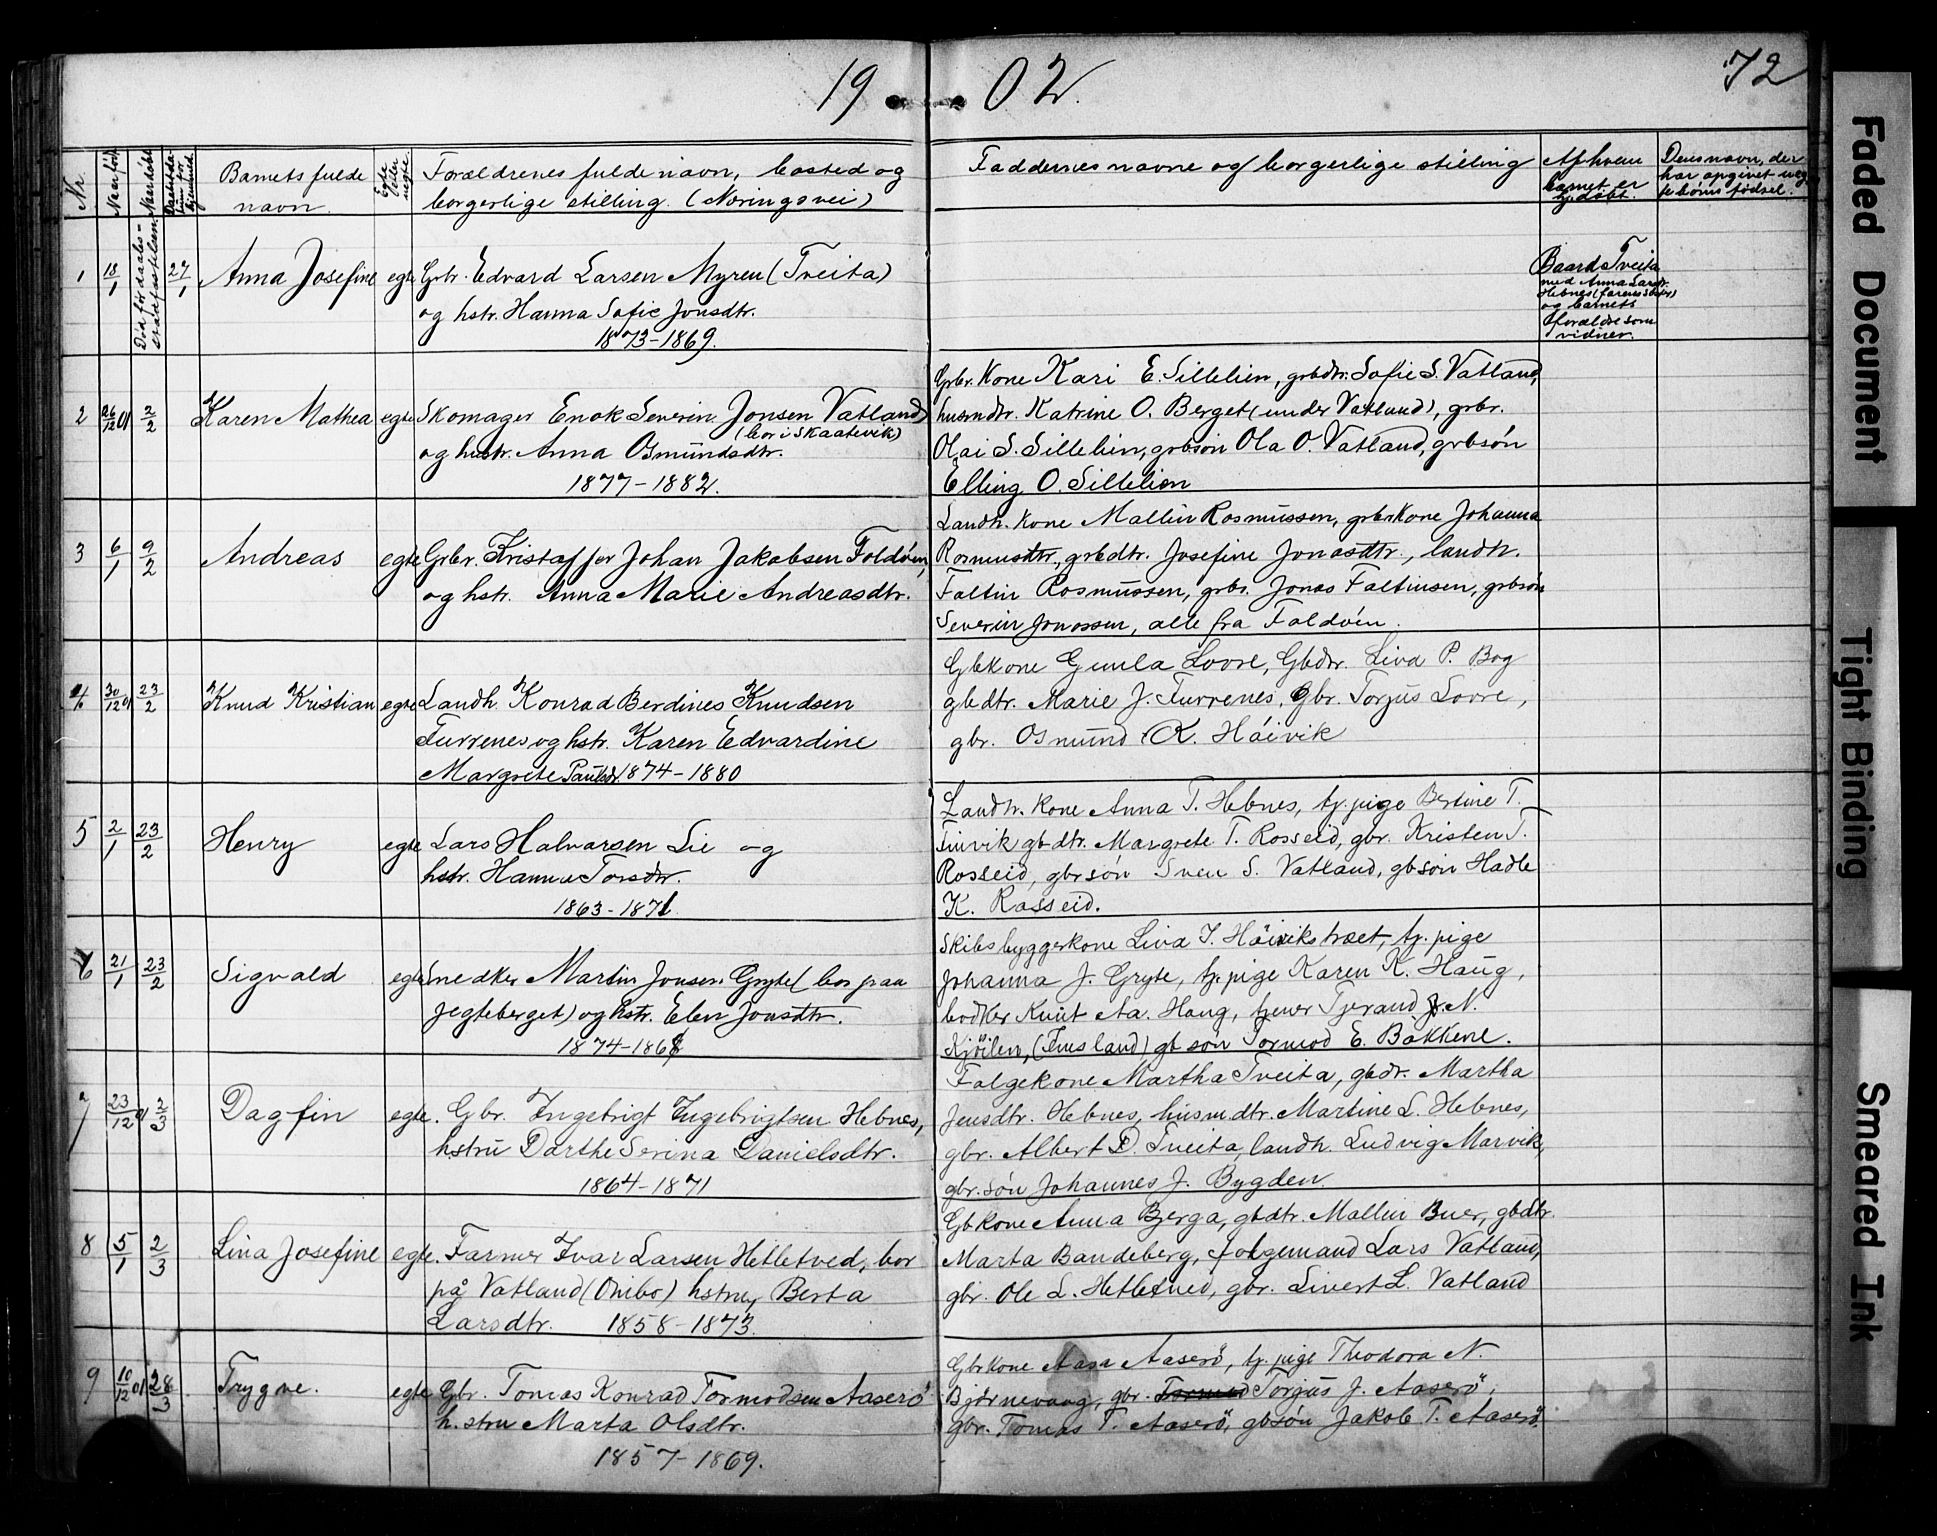 19 02.
72
Nr.
Naar født
Naar døbt
Barnets fulde
navn.
Egte
eller
uegte.
Forældrenes fulde navn, bosted og
borgerlige stilling. (Næringsvei)
Faddernes navne og borgerlige stilling
Af hvem
barnet er
hj.døbt.
Dens navn, der
har opgivet ueg-
te børns fødsel.
1 18/1 Død før daabs-
stadfæstelsen. 27/1 Anna Josefine egte Gbr. Edvard Larsen Myren (Tveita)
og hstr. Hanna Sofie Jonsdtr.
1873-1869.
Baard Tveita
med Anna Larsdtr.
Hebnes (farens søster)
og barnets
forældre som
vidner.
2 26/12 01 2/2 Karen Mathea egte Skomager Enok Severin Jonsen Vatland
(bor i Skaatevik)
og hustr. Anna Osmundsdtr.
1877-1882.
Grbr. Kone Kari E. Sillelien, grbdtr. Sofie S. Vatland,
husmdtr. Katrine O. Berget (under Vatland), grbr.
Olai S. Sillelien, grbsøn Ola O. Vatland, grbsøn
Elling O. Sillelien
3 6/1 9/2 Andreas egte Grbr. Kristaffer Johan Jakobsen Foldøen,
og hstr. Anna Marie Andreasdtr.
Landh. Kone Mallin Rosmussen, grbrkone Johanna
Rosmusdtr., grbdtr. Josefine Jonasdtr., landh.
Faltin Rosmussen, grbr. Jonas Faltinsen, grbsøn
Severin Jonassen, alle fra Foldøen.
4 30/12 01 23/2 Knud Kristian egte Landh. Konrad Berdines Knudsen
Furrenes og hstr. Karen Edvardine
Margrete Paulsdr. 1874-1880
Gbkone Gunla Lovre, Gbdtr. Liva P. Bog
gbdtr. Marie J. Furrenes, Gbr. Torjus Lovre,
gbr. Osmund K. Høivik
5 2/1 23/2 Henry egte Lars Halvarsen Lie og
hstr. Hanna Torsdtr.
1863-1871.
Landh. kone Anna T. Hebnes, tj. pige Bertine T.
Tinvik gbdtr. Margrete T. Rosseid, gbr. Kristen T.
Rosseid, gbrsøn Sven S. Vatland, gbsøn Hadle
K. Rasseid.
6 21/1 23/2 Sigvald egte Snedker Martin Jonsen Gryte (bor paa
Jegteberget) og hstr. Elen Jonsdtr.
1874-1868
Skibsbyggerkone Liva I. Høivikstræet, tj. pige
Johanna J. Gryte, tj. pige Karen K. Haug,
bødker Knut Aa. Haug, tjener Tjerand N.
Kjøilen, (Imsland) gb søn Tormod E. Bakkene.
7 23/12 01 2/3 Dagfin egte. Gbr. Ingebrigt Ingebrigtsen Hebnes,
hstru Darthe Serina Danielsdtr.
1864-1871
Falgekone Martha Tveita, gbdr. Martha
Jensdtr. Hebnes, husmdtr. Martine L. Hebnes,
gbr. Albert D. Tveita, landh. Ludvig Marvik,
gbr. søn Johannes J. Bygden.
8 5/1 2/3 Lina Josefine egte. Farmer Ivar Larsen Hetletved, bor
på Vatland (Onibo) hstru, Berta
Larsdtr. 1858-1873.
Gbkone Anna Bjerga, gbdtr. Mallin Buer, gbdtr.
Marta Bandeberg, folgemand Lars Vatland,
gbr. Ole L. Hetletved, gbr. Sivert L. Vatland
9 10/12 01 28/3 Trygve. egte Gbr. Tomas Konrad Tormodsen Aaserø
h.stru Marta Olsdtr.
1857-1869.
Gbrkone Aasa Aaserö, tj. pige Theodora N.
Bjørnevaag, gbr. Torjus J. Aaserö,
gbr. Tomas T. Aaserö, gbsøn Jakob T. Aaserö.
Faded Document
Tight Binding
Smeared Ink